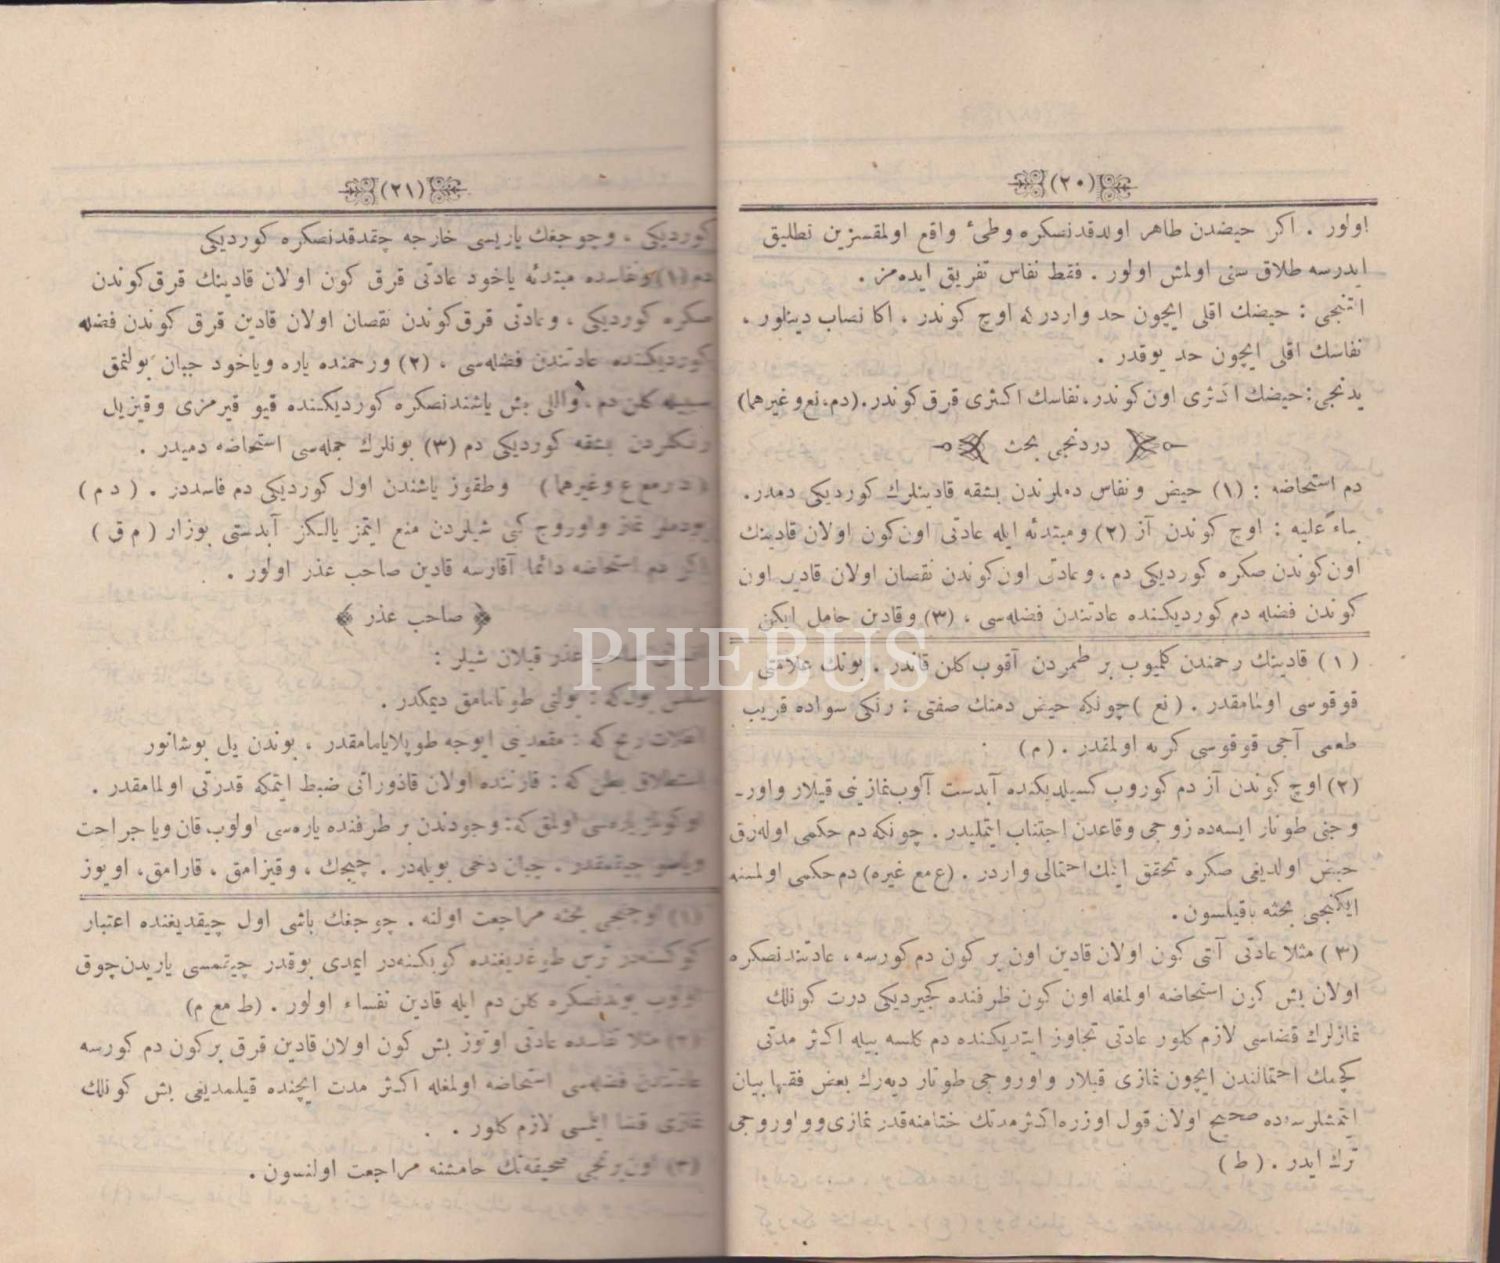 (٢٠)
اولور . اكر حيضدن طاهر اولدقدنصكره وطىء واقع اولمقسزين تطليق
ايدرسه طلاق سنى اولمش اولور . فقط نفاس تفريق ايده‌مز .
التنجى : حيضك اقلى ايچون حد واردركه اوچ كوندر . اكا نصاب دينلور .
نفاسك اقلى ايچون حد يوقدر .
يدنجى : حيضك اكثرى اون كوندر، نفاسك اكثرى قرق كوندر. (دم، نع وغيرهما)
دردنجى بحث
دم استحاضه : (١) حيض ونفاس دملرندن بشقه قادينلرك كورديكى دمدر.
بناءً عليه : اوچ كوندن آز (٢) ومبتدئه ايله عادتى اون كون اولان قادينك
اون كوندن صكره كورديكى دم ، وعادتى اون كوندن نقصان اولان قادين اون
كوندن فضله دم كورديكنده عادتندن فضله‌سى ، (٣) وقادين حامل ايكن
(١) قادينك رحمندن كلميوب بر طمردن آقوب كلن قاندر . بونك علامتى
قوقوسى اولمامقدر . (نع) چونكه حيض دمنك صفتى : رنكى سواده قريب
طعمى آجى قوقوسى كريه اولمقدر . (م)
(٢) اوچ كوندن آز دم كوروب كسيلديكنده آبدست آلوب نمازينى قيلار واور-
وجنى طوتار ايسه‌ده زوجى وقاعدن اجتناب ايتمليدر . چونكه دم حكمى اوله‌رق
حيض اولديغى صكره تحقق ايتمك احتمالى واردر . (ع مع غيره) دم حكمى اولمسنه
ايكنجى بحثه باقيلسون.
(٣) مثلا عادتى آلتى كون اولان قادين اون بر كون دم كورسه ، عادتندنصكره
اولان بش كون استحاضه اولمغله اون كون ظرفنده كچيرديكى درت كونلك
نمازلرك قضاسى لازم كلور عادتى تجاوز ايتديكنده دم كلسه بيله اكثر مدتى
كچمك احتمالندن ايچون نمازى قيلار واوروجى طوتار ديه‌رك بعض فقها بيان
ايتمشلرسه‌ده صحيح اولان قول اوزره اكثر مدتك ختامنه قدر نمازى وواوروجى
ترك ايدر . (ط)
(٢١)
كورديكى ، وچوجغك ياريسى خارجه چقمدقدنصكره كورديكى
دم (١) ونفاسده مبتدئه ياخود عادتى قرق كون اولان قادينك قرق كوندن
صكره كورديكى ، وعادتى قرق كوندن نقصان اولان قادين قرق كوندن فضله
كورديكنده عادتندن فضله‌سى ، (٢) ورحمنده ياره وياخود چبان بولنمق
سببيله كلن دم ، واللى بش ياشندنصكره كورديكنده قيو قيرمزى وقيزيل
رنكلردن بشقه كورديكى دم (٣) بونلرك جمله‌سى استحاضه دميدر .
(در مع ع وغيرهما) وطقوز ياشندن اول كورديكى دم فاسددر . (دم)
بودملر نماز واوروج كبى شيلردن منع ايتمز يالكز آبدستى بوزار (م ق)
اكر دم استحاضه دائما آقارسه قادين صاحب عذر اولور .
صاحب عذر
صاحب عذر قيلان شيلر :
سلس بول كه : بولنى طوتامامق ديمكدر .
انفلات ريح كه : مقعدينى ايوجه طوپلايامامقدر ، بوندن يل بوشانور
استطلاق بطن كه : قارننده اولان قاذوراتى ضبط ايتمكه قدرتى اولمامقدر .
اوكولماز ياره‌سى اولمق كه : وجودندن بر طرفنده ياره‌سى اولوب قان ويا جراحت
وياصو چيقمقدر . چبان دخى بويله‌در . چيچك ، وقيزامق ، قارامق، اويوز
(١) اوچنجى بحثه مراجعت اولنه . چوجغك باشى اول چيقديغنده اعتبار
كوكسنه‌در ترس طوغديغنده كوبكنه‌در ايمدى بوقدر چيقمسى ياريدن چوق
اولوب بوندنصكره كلن دم ايله قادين نفساء اولور . (ط مع م)
(٢) مثلا نفاسده عادتى اوتوز بش كون اولان قادين قرق بر كون دم كورسه
عادتندن فضله‌سى استحاضه اولمغله اكثر مدت ايچنده قيلمديغى بش كونلك
نمازى قضا ايتمسى لازم كلور .
(٣) اون برنجى صحيفه‌نك حامشنه مراجعت اولنسون .
PHEBUS